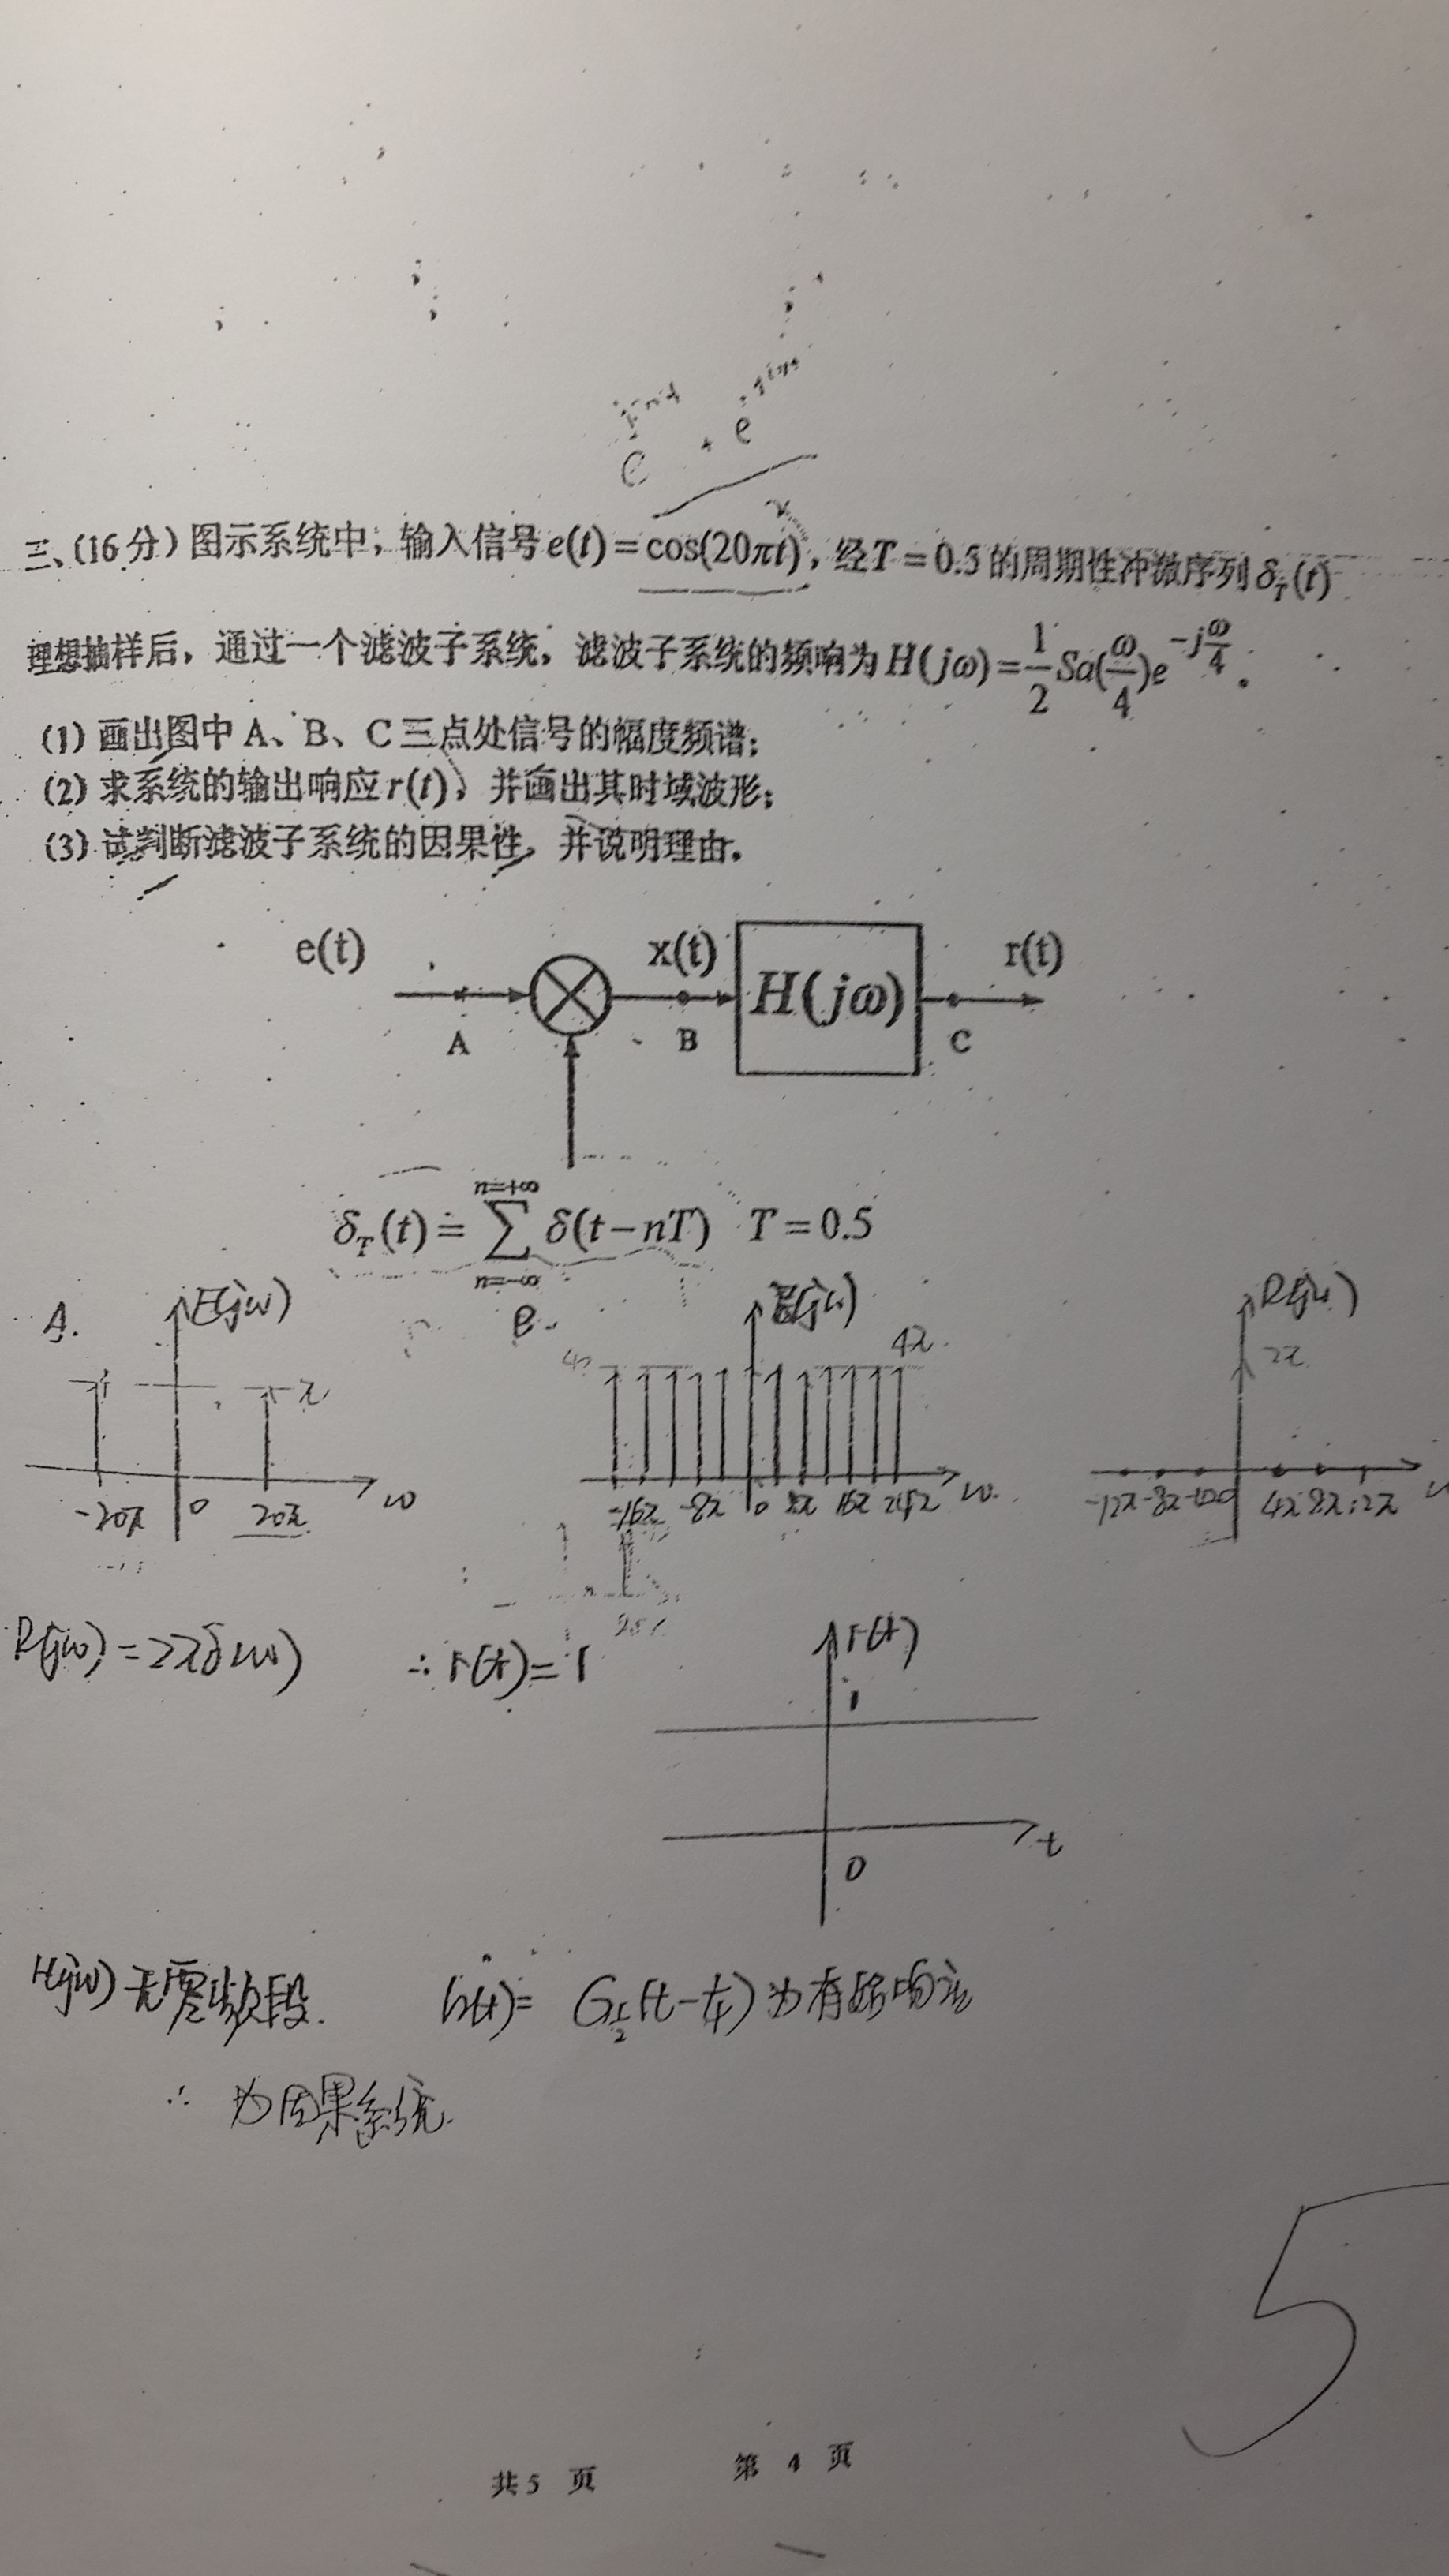 三、(16分)图示系统中，输入信号e(t)=cos(20πt)，经T=0.5的周期性冲激序列δ_T(t)
理想抽样后，通过一个滤波子系统，滤波子系统的频响为H(jω)=1/2 Sa(ω/4)e^{-jω/4}。
(1)画出图中A、B、C三点处信号的幅度频谱；
(2)求系统的输出响应r(t)，并画出其时域波形；
(3)试判断滤波子系统的因果性，并说明理由。
e(t) x(t) H(jω) r(t)
A B C
δ_T(t)=∑_{n=-∞}^{n=+∞} δ(t-nT) T=0.5
A. E(jω) B. R(jω)
π 4π 2π
-20π 0 20π ω
-16π -8π 0 8π 16π 24π ω
-12π -8π 0 4π 8π 12π
R(jω)=2πδ(ω) ∴ r(t)=1
r(t)
1
0 t
H(jω)无零频段. h(t)=
∴ 为因果系统.
5
共5 页 第 4 页